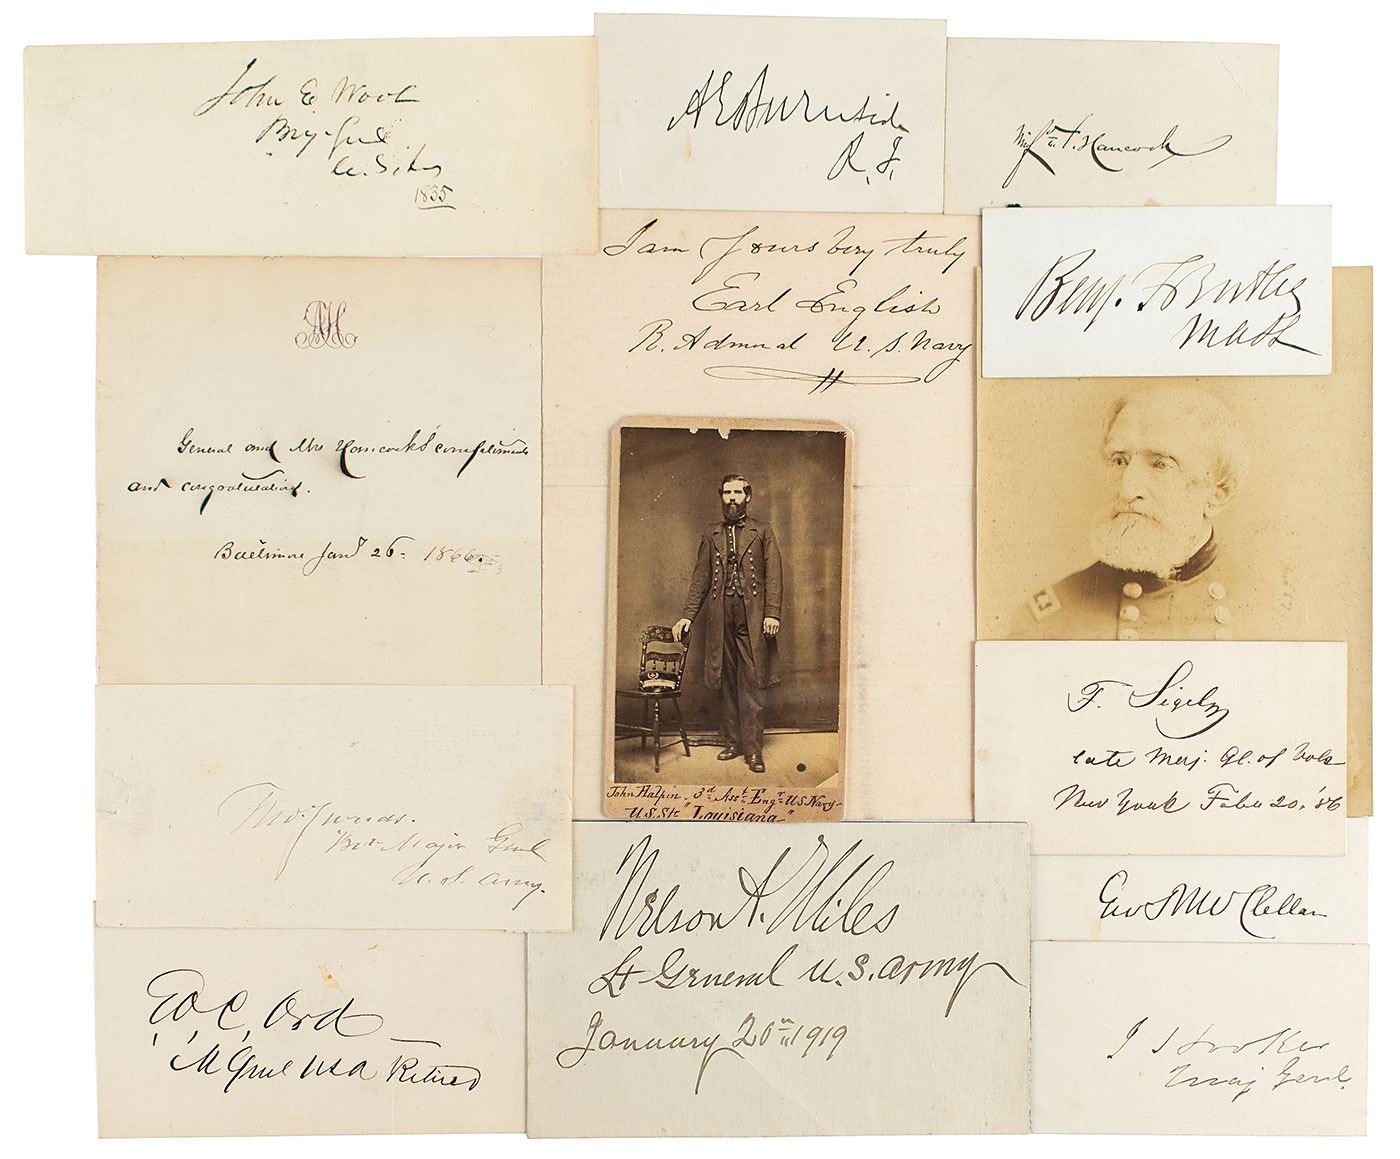 John E Wool
Brig. Genl
U. S. Army
1835
A E Burnside
R. I.
Winfd S. Hancock
I am Yours very truly
Earl English
R. Admiral U. S. Navy
Benj. F Butler
Mass
AH
General and Mrs Hancock's compliments
and congratulations.
Baltimore Jany 26. 1866.
John Halpin - 3d Asst Engr US Navy -
U.S. Str "Louisiana"
F. Sigel
late Maj. Gl. of Vols
New York Febr 20, '86
Bvt Major Genl
U. S. Army.
Nelson A. Miles
Lt General U.S. Army
January 20th 1919
Geo B McClellan
E, O, C, Ord
M Genl USA Retired
J Hooker
Maj Genl.